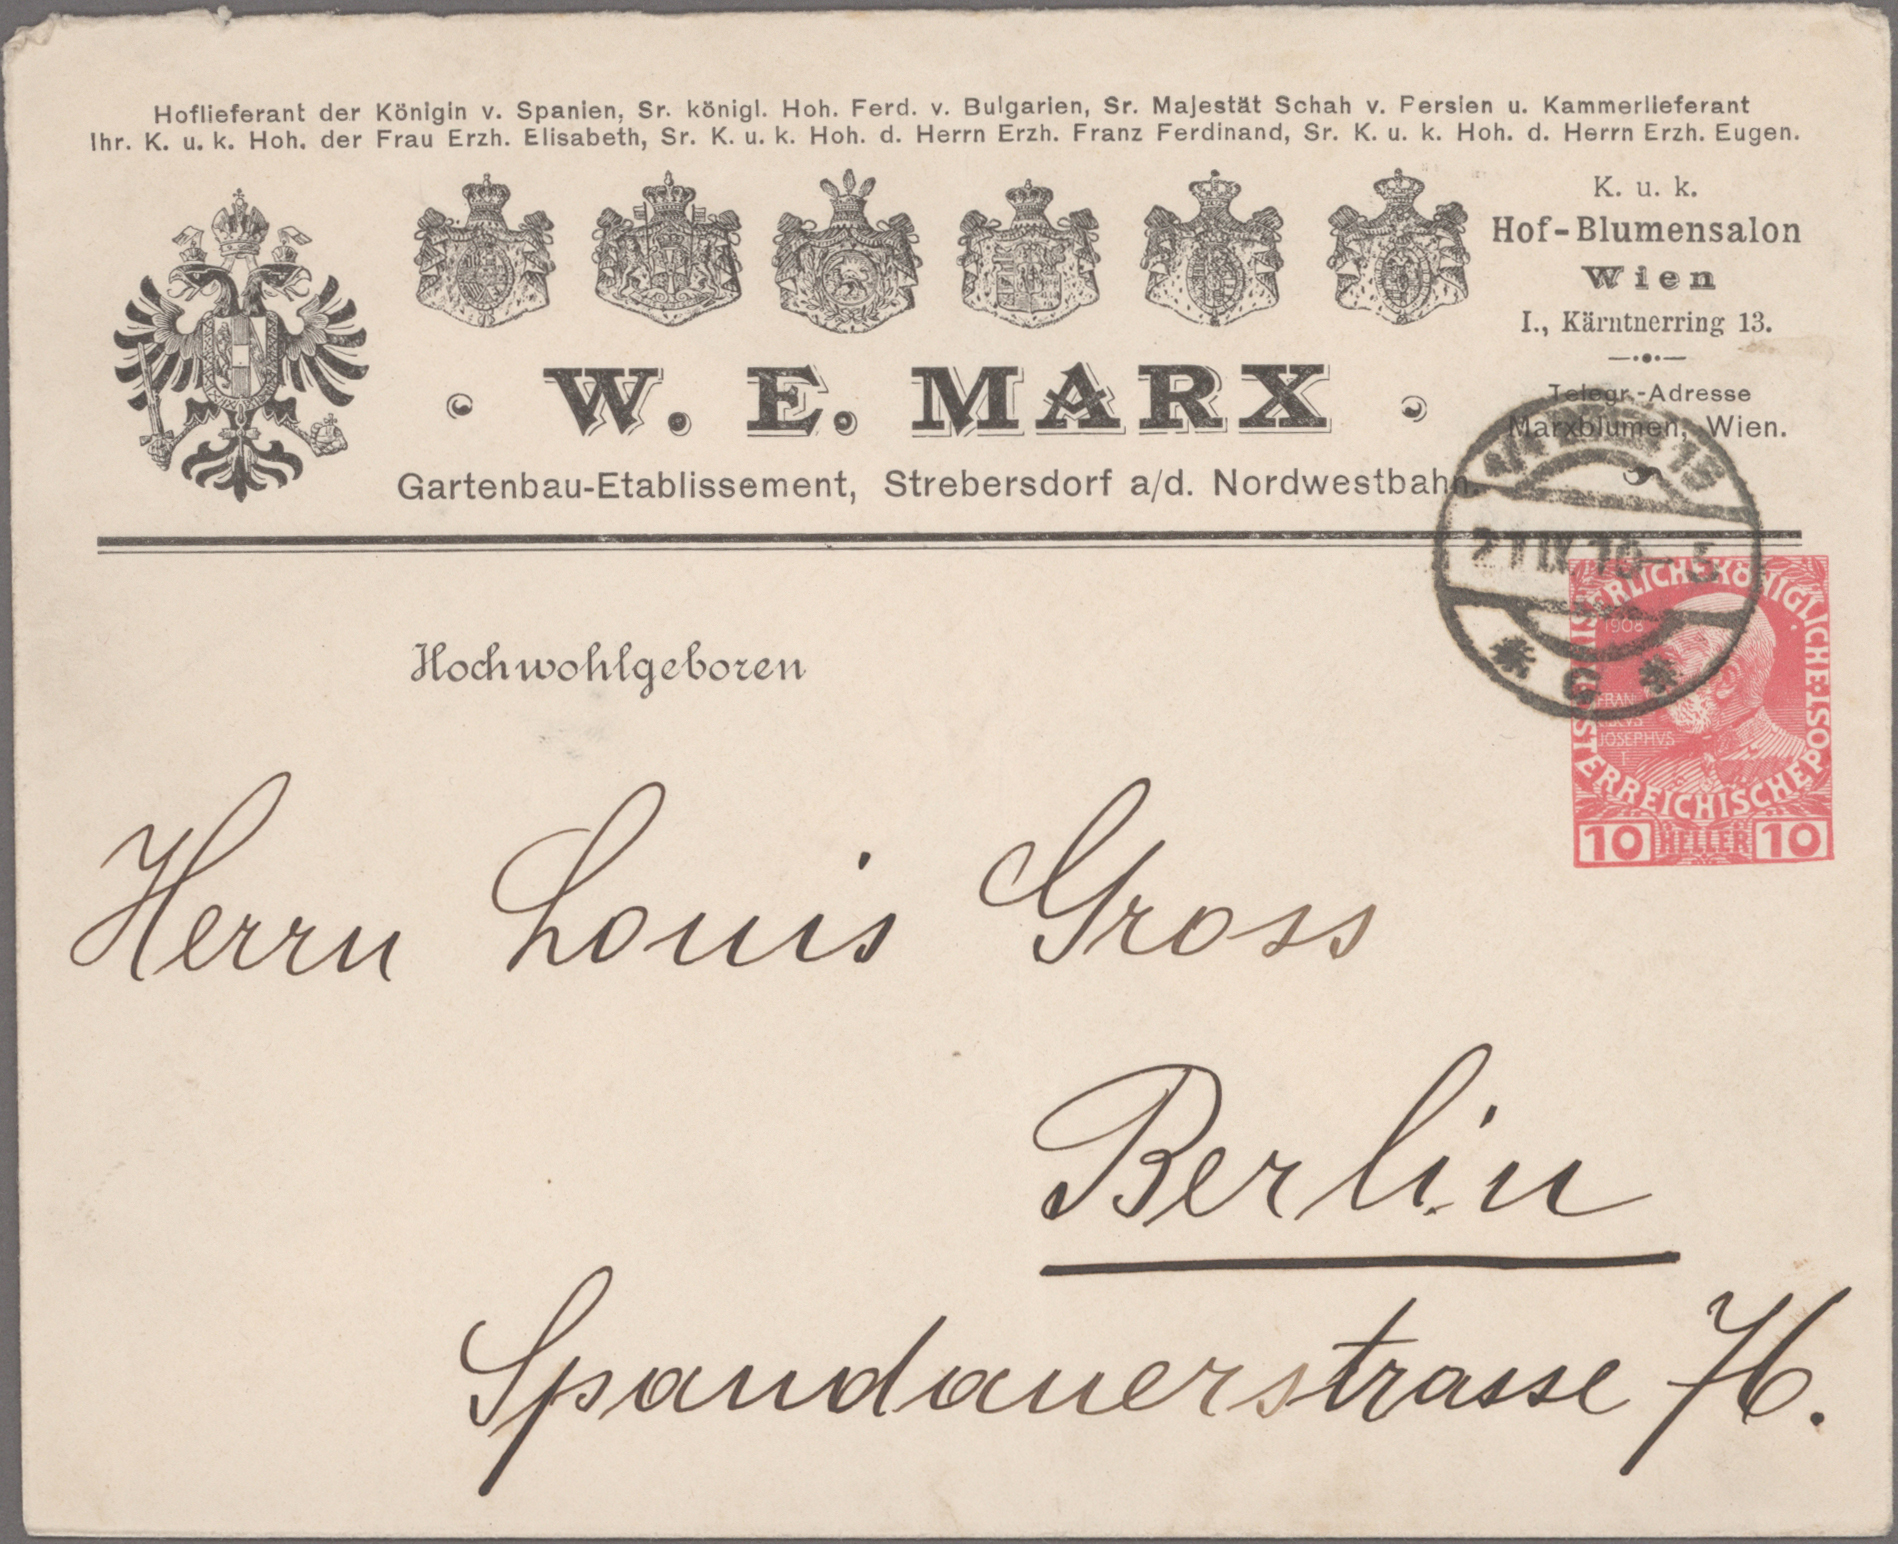 Hoflieferant der Königin v. Spanien, Sr. königl. Hoh. Ferd. v. Bulgarien, Sr. Majestät Schah v. Persien u. Kammerlieferant
Ihr. K. u. k. Hoh. der Frau Erzh. Elisabeth, Sr. K. u. k. Hoh. d. Herrn Erzh. Franz Ferdinand, Sr. K. u. k. Hoh. d. Herrn Erzh. Eugen.
K. u. k.
Hof-Blumensalon
Wien
I., Kärntnerring 13.
Telegr.-Adresse
Marxblumen, Wien.
W. E. MARX
Gartenbau-Etablissement, Strebersdorf a/d. Nordwestbahn.
21 IX. 10
KAISERLICHE KÖNIGLICHE
ÖSTERREICHISCHE POST
1908
JOSEPHVS
I
10 HELLER 10
Hochwohlgeboren
Herrn Louis Gross
Berlin
Spandauerstrasse 76.